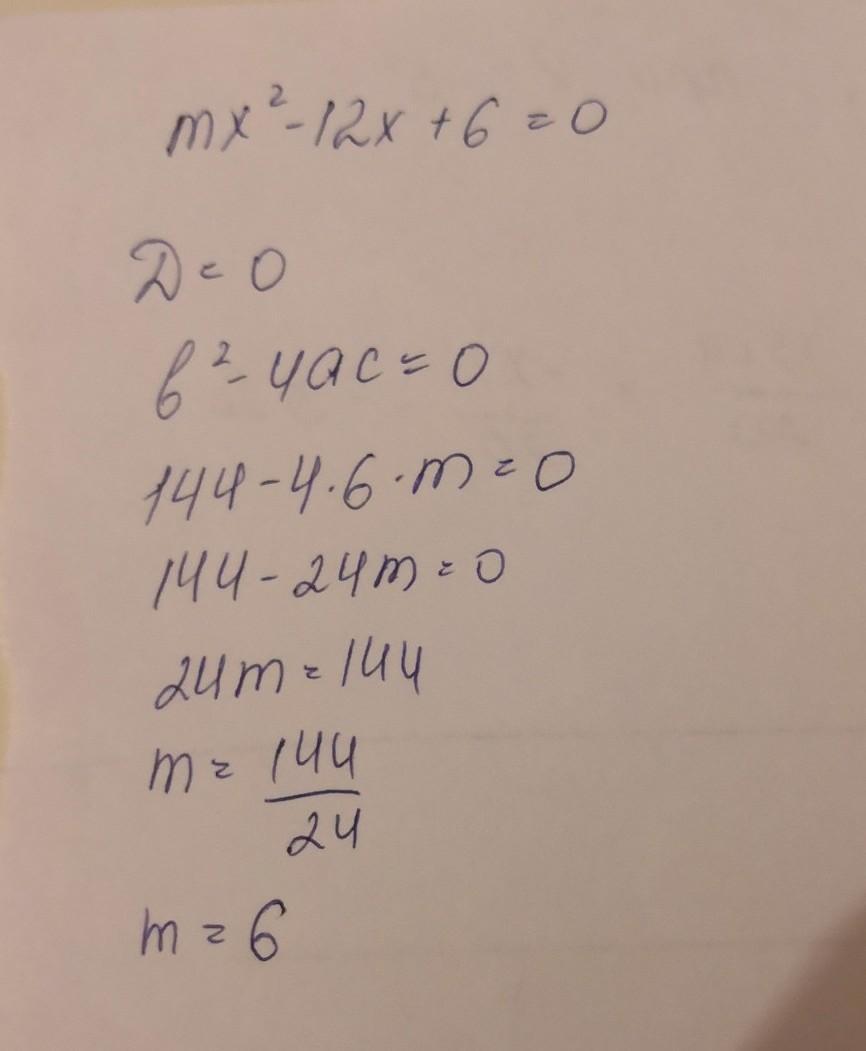 mx²-12x+6=0
D=0
b²-4ac=0
144-4·6·m=0
144-24m=0
24m=144
m=144/24
m=6